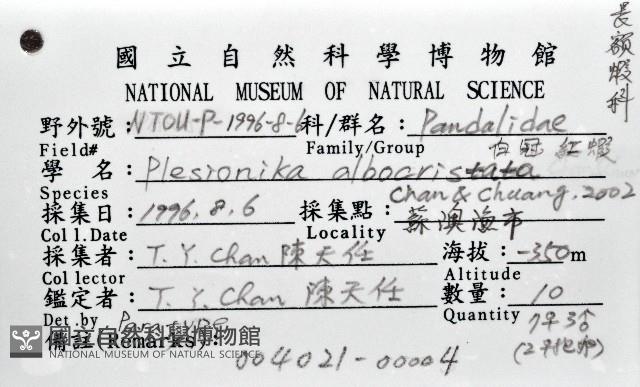 長額蝦科
國立自然科學博物館
NATIONAL MUSEUM OF NATURAL SCIENCE
野外號：NTOU-P-1996-8-6 科/群名：Pandalidae
Field# Family/Group 白冠紅蝦
學名：Plesionika albocristata
Species Chan & Chuang, 2002
採集日：1996.8.6 採集點：蘇澳漁市
Col l. Date Locality
採集者：T. Y. Chan 陳天任 海拔：-350m
Col lector Altitude
鑑定者：T. Y. Chan 陳天任 數量：10
Det by Paratype Quantity 7♀3♂
備註(Remarks):
004021-00004
國立自然科學博物館
NATIONAL MUSEUM OF NATURAL SCIENCE